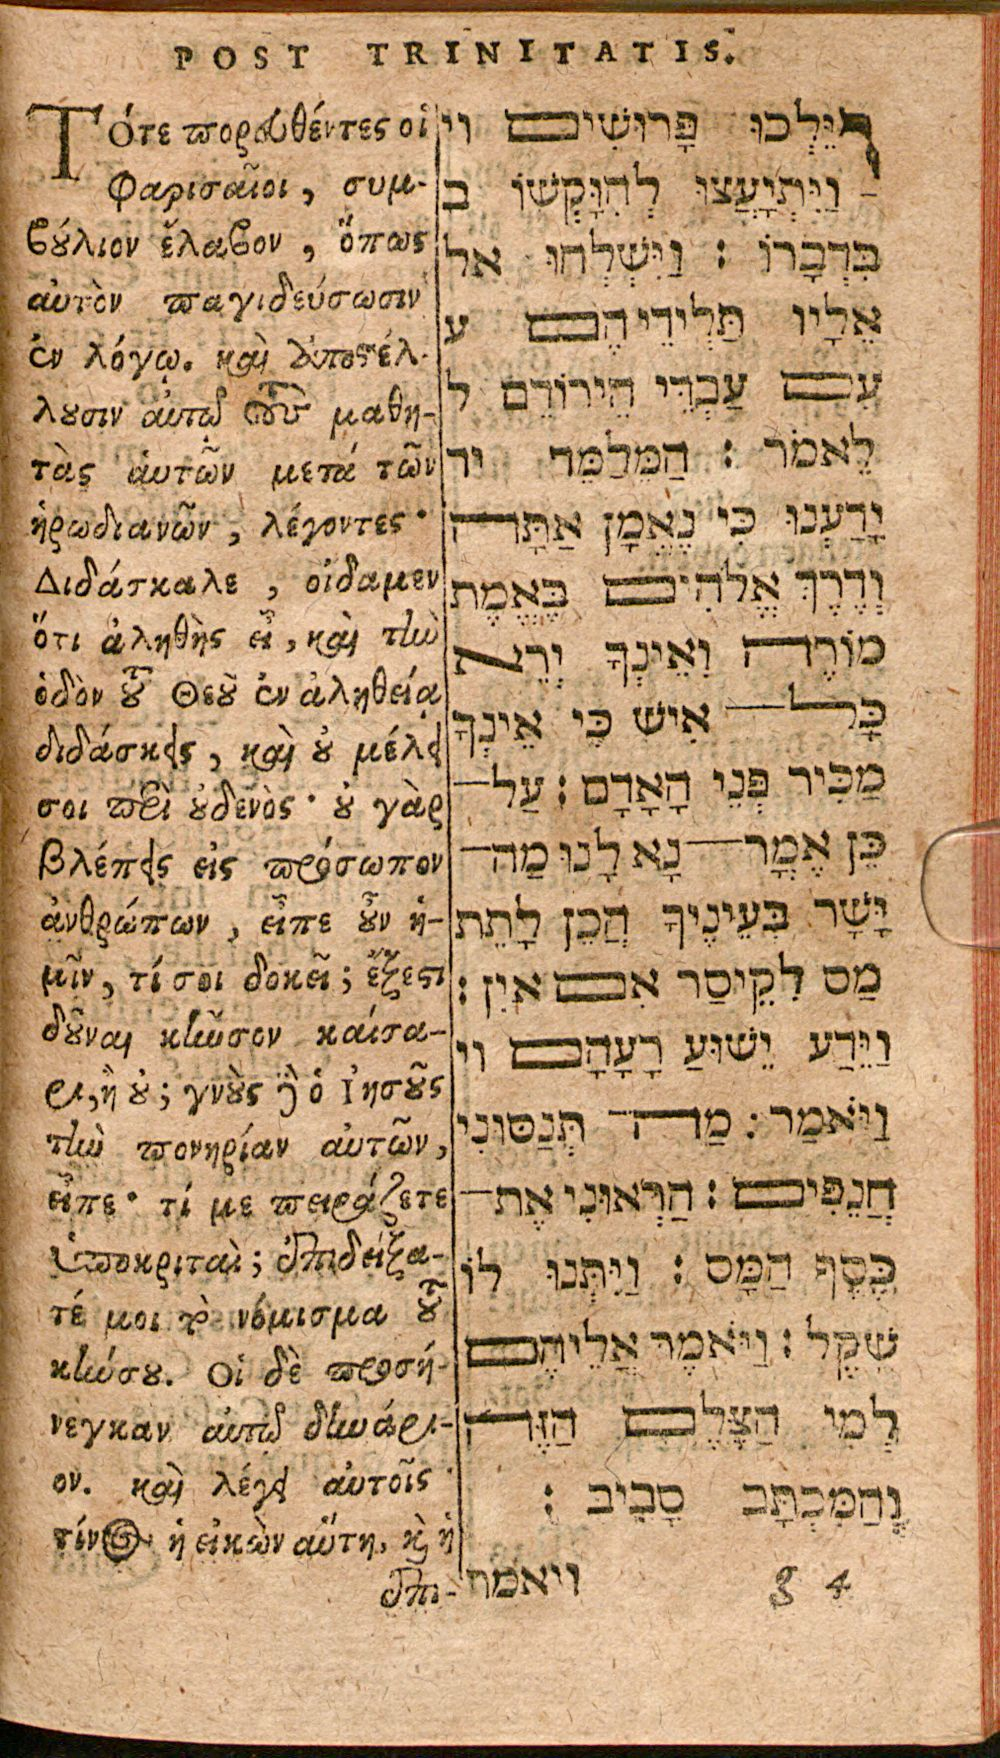 POST TRINITATIS.
Τότε πορευθέντες οἱ
Φαρισαῖοι, συμ-
βούλιον ἔλαβον, ὅπως
αὐτὸν παγιδεύσωσιν
ἐν λόγῳ. καὶ ἀποστέλ-
λουσιν αὐτῷ τοὺς μαθη-
τὰς ἁυτῶν μετά τῶν
ἡρωδιανῶν, λέγοντες·
Διδάσκαλε, οἴδαμεν
ὅτι ἀληθὴς εἶ, καὶ τὴν
ὁδὸν τοῦ Θεοῦ ἐν ἀληθείᾳ
διδάσκεις, καὶ οὐ μέλει
σοι περὶ οὐδενὸς· οὐ γὰρ
βλέπεις εἰς πρόσωπον
ἀνθρώπων, εἶπε οὖν ἡ-
μῖν, τί σοι δοκεῖ; ἔξεστι
δοῦναι κῆνσον καίσα-
ρι, ἢ οὐ; γνοὺς δὲ ὁ Ιησοῦς
τὴν πονηρίαν αὐτῶν,
εἶπε· τί με πειράζετε
ὑποκριταὶ; ἐπιδείξα-
τέ μοι τὸ νόμισμα τοῦ
κήνσου. Οἱ δὲ προσή-
νεγκαν αὐτῷ δηνάρι-
ον. καὶ λέγει αὐτοῖς·
τίνος ἡ εἰκὼν αὕτη, καὶ ἡ
ἐπι-
וַיֵּלְכוּ פָּרוּשִׁים וי
וַיִּתְיָעֲצוּ לְהִוָּקְשׁוֹ ב
בִּדְבָרוֹ : וַיִּשְׁלְחוּ אל
אֵלָיו תַּלְמִידֵיהֶם ע
עִם עַבְדֵּי הֵירוֹדֵם ל
לֵאמֹר : הַמְּלַמֵּד יד
יָדַעְנוּ כִּי נֶאֱמָן אַתָּה
וְדֶרֶךְ אֱלֹהִים בֶּאֱמֶת
מוֹרֶה וְאֵינְךָ יְרֵא
כָּל אִישׁ כִּי אֵינְךָ
מַכִּיר פְּנֵי הָאָדָם : עַל
כֵּן אֱמָר נָא לָנוּ מַה
יָּשָׁר בְּעֵינֶיךָ הֲכֵן לָתֵת
מַס לְקֵיסַר אִם אַיִן :
וַיֵּדַע יֵשׁוּעַ רָעָהָם וי
וַיֹּאמַר : מַה תְּנַסּוּנִי
חֲנֵפִים : הַרְאוּנִי אֶת
כֶּסֶף הַמַּס : וַיִּתְּנוּ לוֹ
שֶׁקֶל : וַיֹּאמֶר אֲלֵיהֶם
לְמִי הַצֶּלֶם הַזֶּה
וְהַמִּכְתָּב סָבִיב :
ויאמרו
g 4